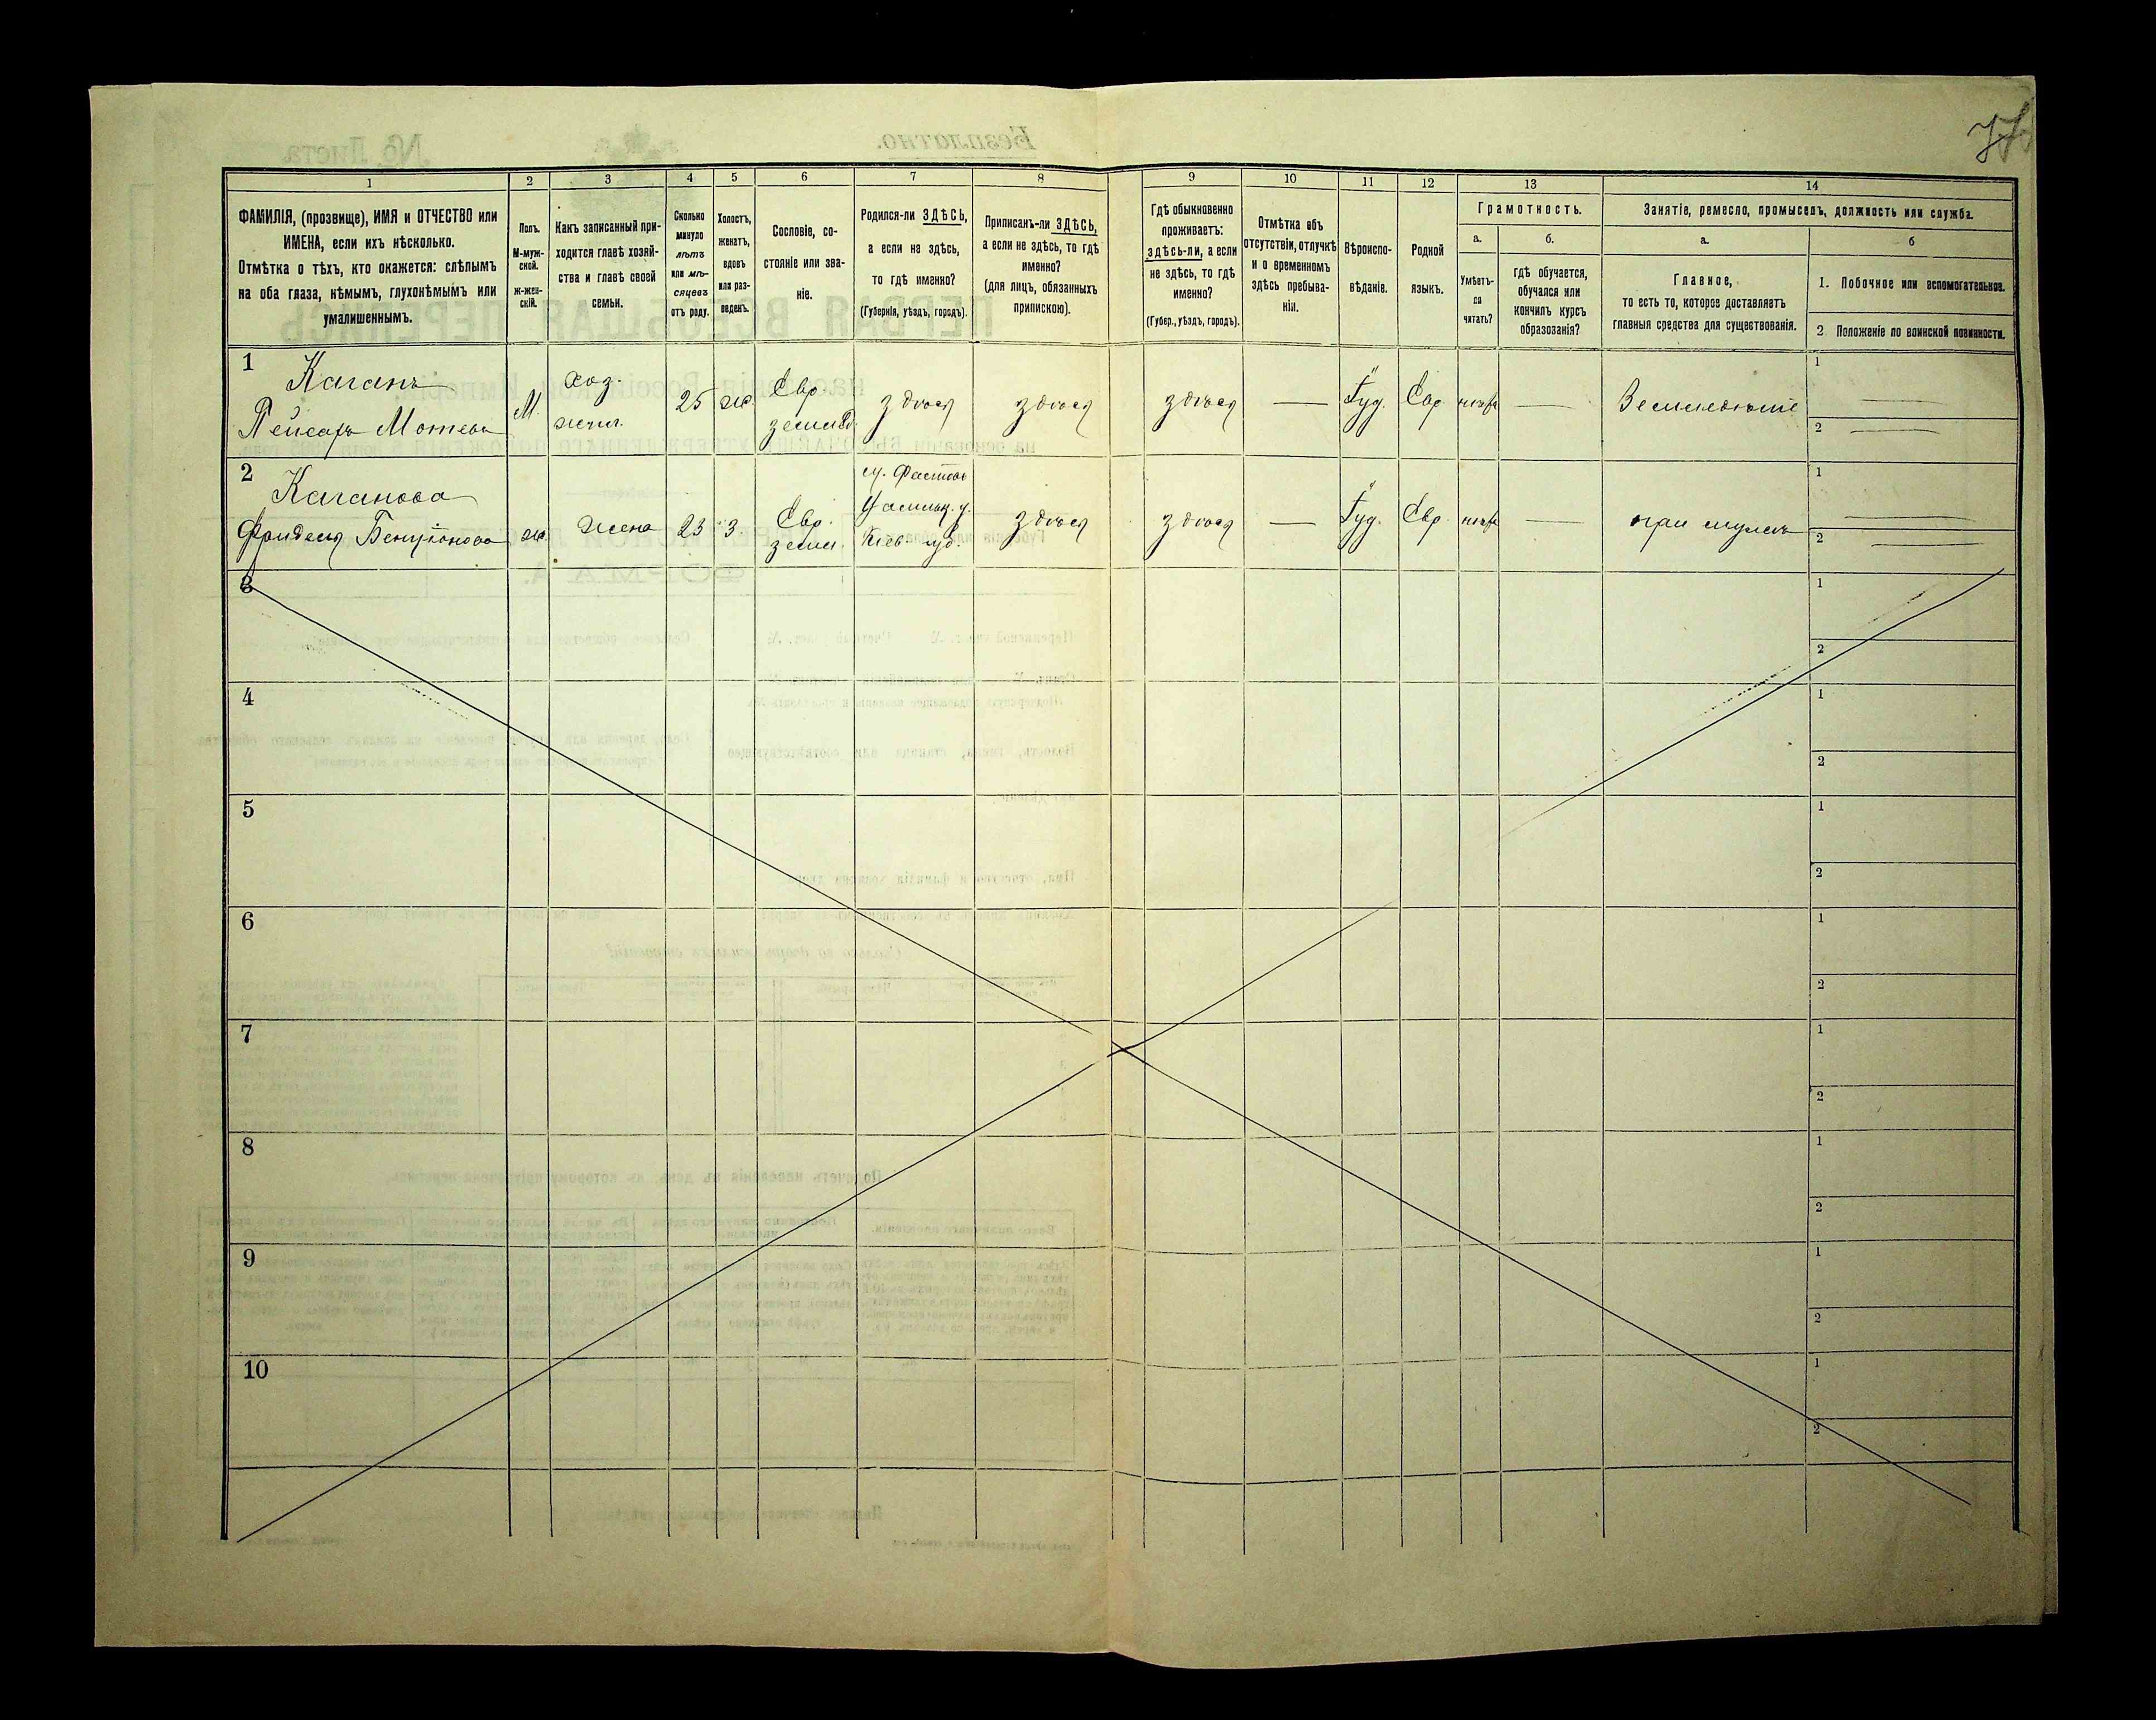 77
1
2
3
4
5
6
7
8
9
10
11
12
13
14
ФАМИЛІЯ, (прозвище), ИМЯ и ОТЧЕСТВО или
ИМЕНА, если ихъ нѣсколько.
Отмѣтка о тѣхъ, кто окажется: слѣпымъ
на оба глаза, нѣмымъ, глухонѣмымъ или
умалишеннымъ.
Полъ.
М-муж-
ской.
ж-жен-
скій.
Какъ записанный при-
ходится главѣ хозяй-
ства и главѣ своей
семьи.
Сколько
минуло
лѣтъ
или мѣ-
сяцевъ
отъ роду.
Холостъ,
женатъ,
вдовъ
или раз-
веденъ.
Сословіе, со-
стояніе или зва-
ніе.
Родился-ли ЗДѢСЬ,
а если не здѣсь,
то гдѣ именно?
(Губернія, уѣздъ, городъ).
Приписанъ-ли ЗДѢСЬ,
а если не здѣсь, то гдѣ
именно?
(для лицъ, обязанныхъ
припискою).
Гдѣ обыкновенно
проживаетъ:
здѣсь-ли, а если
не здѣсь, то гдѣ
именно?
(Губер., уѣздъ, городъ).
Отмѣтка объ
отсутствіи, отлучкѣ
и о временномъ
здѣсь пребыва-
ніи.
Вѣроиспо-
вѣданіе.
Родной
языкъ.
Грамотность.
а.
б.
Умѣетъ-
ли
читать?
гдѣ обучается,
обучался или
кончилъ курсъ
образованія?
Занятіе, ремесло, промыселъ, должность или служба.
а.
б
Главное,
то есть то, которое доставляетъ
главныя средства для существованія.
1. Побочное или вспомогательное.
2 Положеніе по воинской повинности.
1
Каганъ
Пейсахъ Мотевъ
М.
хоз.
25
ж.
Евр.
земл
здѣсь
здѣсь
здѣсь
—
Іуд.
Евр
—
Земледѣліе
1
2
2
Каганова
Фрейделя Бенціонова
ж.
жена
23
з.
Евр.
земл
м. Фастовъ
Кіев. губ.
здѣсь
здѣсь
—
Іуд.
Евр
—
при мужѣ
1
2
3
1
2
4
1
2
5
1
2
6
1
2
7
1
2
8
1
2
9
1
2
10
1
2